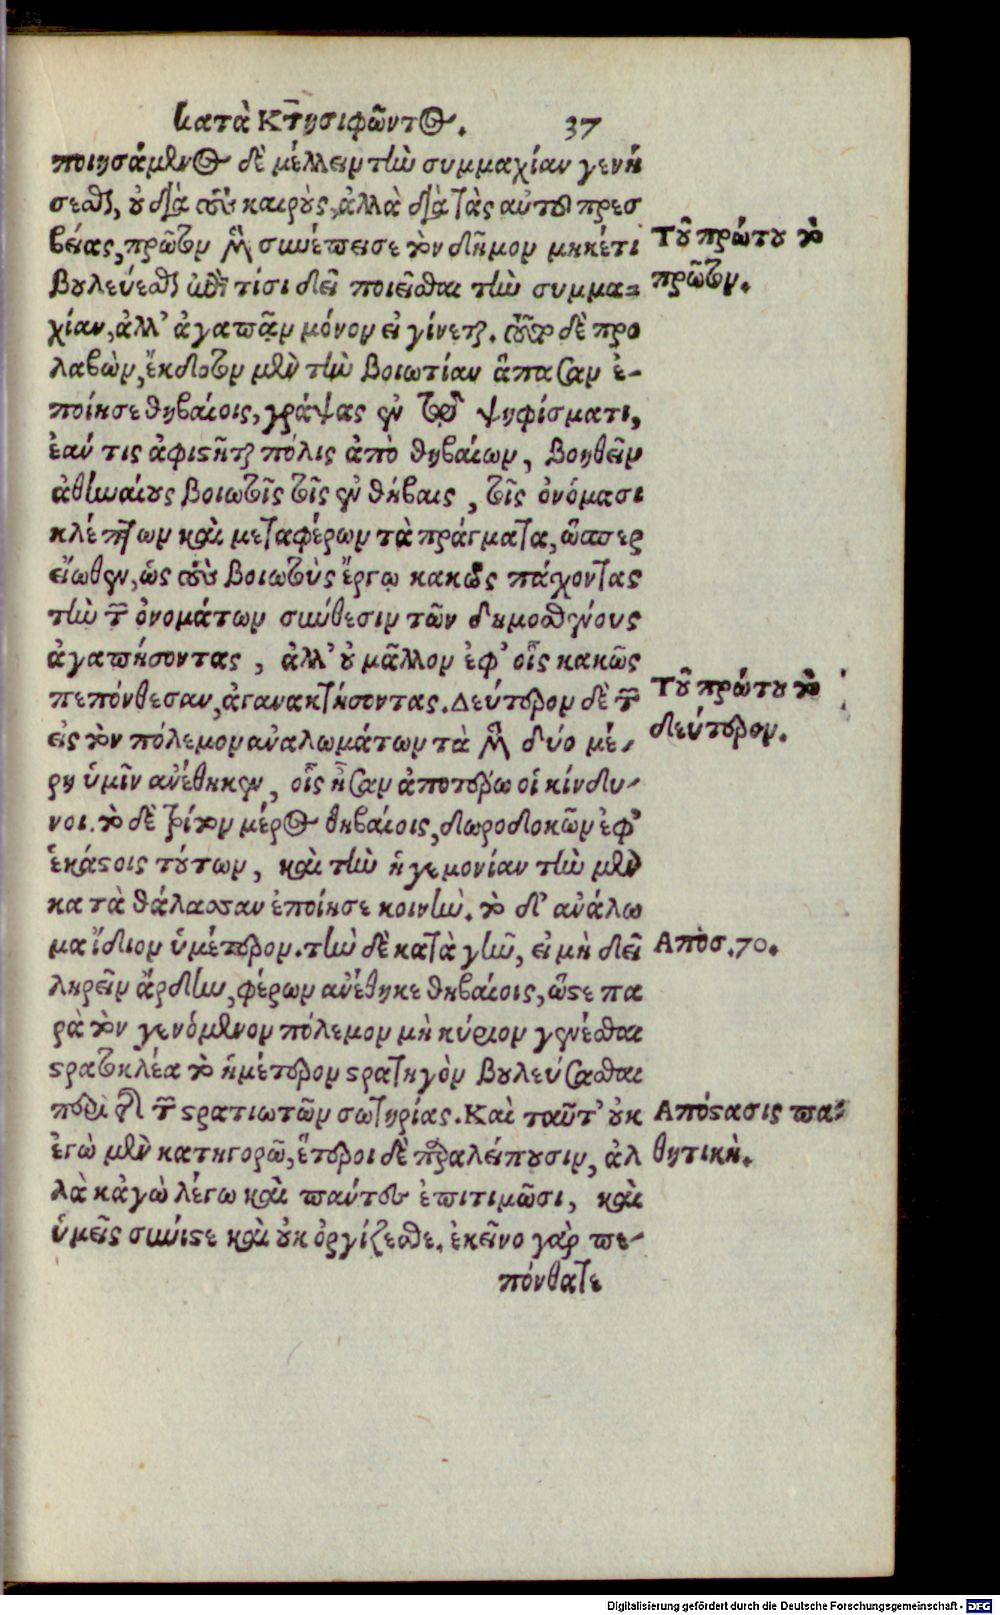 κατὰ Κτησιφῶντος. 37
ποιησάμενος δὲ μέλλειν τὴν συμμαχίαν γενή
σεσθαι, οὐ διὰ τοὺς καιροὺς, ἀλλὰ διὰ τὰς αὑτοῦ πρεσ
βείας, πρῶτον μὲν συνέπεισε τὸν δῆμον μηκέτι
βουλεύεσθαι ἐπὶ τίσι δεῖ ποιεῖσθαι τὴν συμμα-
χίαν, ἀλλ' ἀγαπᾷν μόνον εἰ γίνεται. τοῦτο δὲ προ
λαβὼν, ἔκδοτον μὲν τὴν βοιωτίαν ἅπασαν ἐ-
ποίησε θηβαίοις, γράψας ἐν τῷ ψηφίσματι,
ἐάν τις ἀφιστῆται πόλις ἀπὸ θηβαίων, βοηθεῖν
ἀθηναίους βοιωτοῖς τοῖς ἐν θήβαις, τοῖς ὀνόμασι
κλέπτων καὶ μεταφέρων τὰ πράγματα, ὥσπερ
εἴωθεν, ὡς τοὺς βοιωτοὺς ἔργῳ κακῶς πάχοντας
τὴν τῶν ὀνομάτων σύνθεσιν τῶν δημοσθένους
ἀγαπήσοντας, ἀλλ' οὐ μᾶλλον ἐφ' οἷς κακῶς
πεπόνθεσαν, ἀγανακτήσοντας. Δεύτερον δὲ τῶν
εἰς τὸν πόλεμον ἀναλωμάτων τὰ μὲν δύο μέ-
ρη ὑμῖν ἀνέθηκεν, οἷς ἦσαν ἀποτέρω οἱ κίνδυ-
νοι. τὸ δὲ τρίτον μέρος θηβαίοις, δωροδοκῶν ἐφ'
ἑκάστοις τούτων, καὶ τὴν ἡγεμονίαν τὴν μὲν
κατὰ θάλασσαν ἐποίησε κοινήν. τὸ δ' ἀνάλω
μα ἴδιον ὑμέτερον. τὴν δὲ κατὰ γῆν, εἰ μὴ δεῖ
ληρεῖν ἄρδην, φέρων ἀνέθηκε θηβαίοις, ὥστε πα
ρὰ τὸν γενόμενον πόλεμον μὴ κύριον γενέσθαι
στρατοκλέα τὸ ἡμέτερον στρατηγὸν βουλεύσασθαι
περὶ τῆς τῶν στρατιωτῶν σωτηρίας. Καὶ ταῦτ' οὐκ
ἐγὼ μὲν κατηγορῶ, ἕτεροι δὲ παραλείπουσιν, ἀλ
λὰ κἀγὼ λέγω καὶ πάντες ἐπιτιμῶσι, καὶ
ὑμεῖς σύνιστε καὶ οὐκ ὀργίζεσθε. ἐκεῖνο γὰρ πε-
πόνθατε
Τοῦ πρώτου τὸ
πρῶτον.
Τοῦ πρώτου τὸ
δεύτερον.
Απόσ. 70.
Απόστασις πα-
θητικὴ.
Digitalisierung gefördert durch die Deutsche Forschungsgemeinschaft - DFG